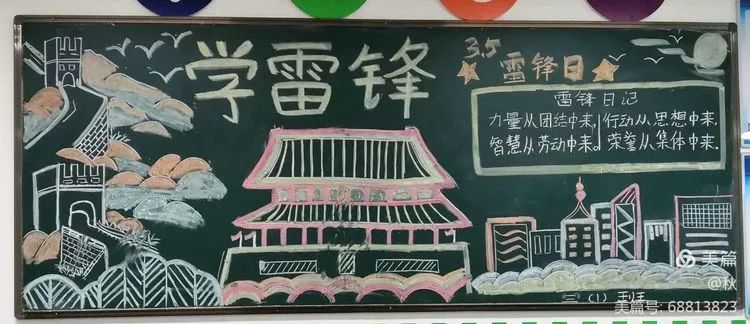 学雷锋
3.5
雷锋日
雷锋日记
力量从团结中来,行动从思想中来,
智慧从劳动中来。荣誉从集体中来.
三(1)王珏
美篇
@秋
美篇号: 68813823